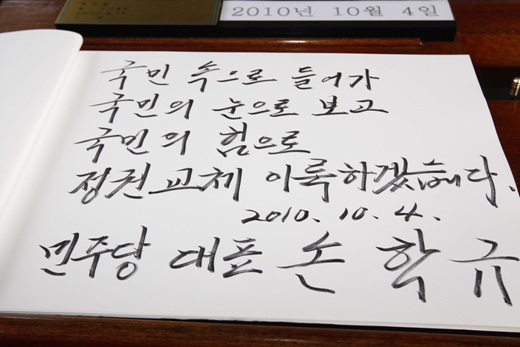 2010년 10월 4일
국민 속으로 들어가
국민의 눈으로 보고
국민의 힘으로
정권교체 이룩하겠습니다.
2010. 10. 4.
민주당 대표 손 학 규